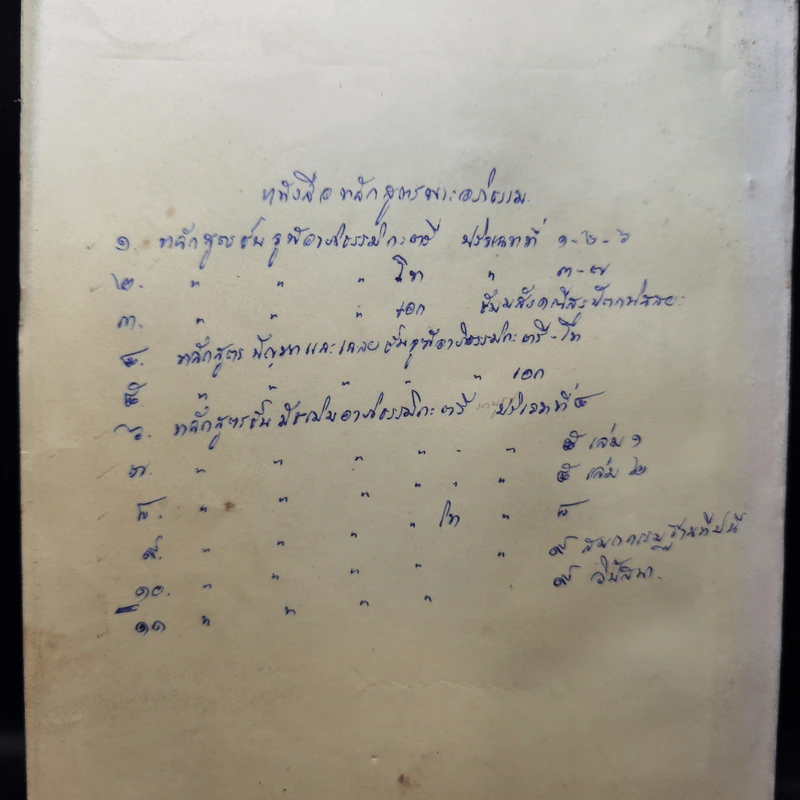 หนังสือ หลักสูตรพระอภิธรรม
๑. หลักสูตรชั้น จูฬอาภิธรรมิกะตรี ปริจเฉทที่ ๑-๒-๖
๒. " " " โท " ๓-๗
๓. " " " เอก ชั้นมสังคณีสรูปัตถนิสสยะ
๔. หลักสูตร ปัญหาและเฉลย ชั้นจูฬอาภิธรรมิกะ ตรี-โท
๕ " " " " " เอก
๖. หลักสูตรชั้น มัชฌิมอาภิธรรมิกะ ตรี ปริจเฉทที่ ๔
๗. " " " " " " ๕ เล่ม ๑
๘. " " " " " " ๕ เล่ม ๒
๙. " " " " โท " ๘
๑๐. " " " " " ๙ สมถกรรมฐานทีปนี
๑๑ " " " " ๙ วิปัสสนา.